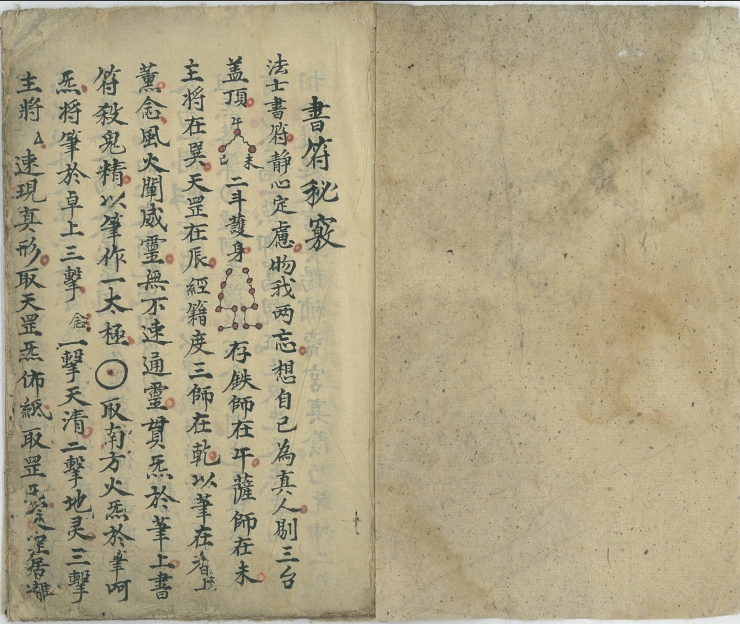 書符秘竅
法士書符静心定慮物我两忘想自己為真人剔三台
盖頂午未二斗護身存鉄師在午薩師在未
主将在巽天罡在辰經籍度三師在乾以筆在香上
薰念風火闡威霊無不速通霊貫炁於筆上書
符殺鬼精以筆作一太極〇取南方火炁於筆呵
炁将筆於卓上三擊念一擊天清二擊地灵三擊
主將速現真形取天罡炁佈紙取罡居離